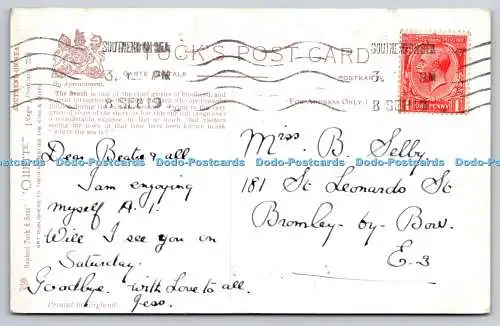 SOUTHEND-ON-SEA
TUCK'S POST CARD
CARTE POSTALE
POSTKARTE
By Appointment.
FOR ADDRESS ONLY
The Beach is one of the chief glories of Southend, and
SOUTHEND-ON-SEA
3. PM
8 SEP 19
SOUTHEND-ON-SEA
3. PM
8 SEP
ONE PENNY
"OILETTE"
Raphael Tuck & Sons'
ART PUBLISHERS TO THEIR MAJESTIES THE KING &
Dear Beatie & all
I am enjoying
myself A.1.
Will I see you on
Saturday.
Goodbye. with Love to all.
Jess.
Miss B. Selby
181 St Leonards St
Bromley-by-Bow
E.3
Printed in England.
Dodo-Postcards Dodo-Postcards Dodo-Postcards Dodo-Postcards Dodo-Postcards Dodo-Postcards